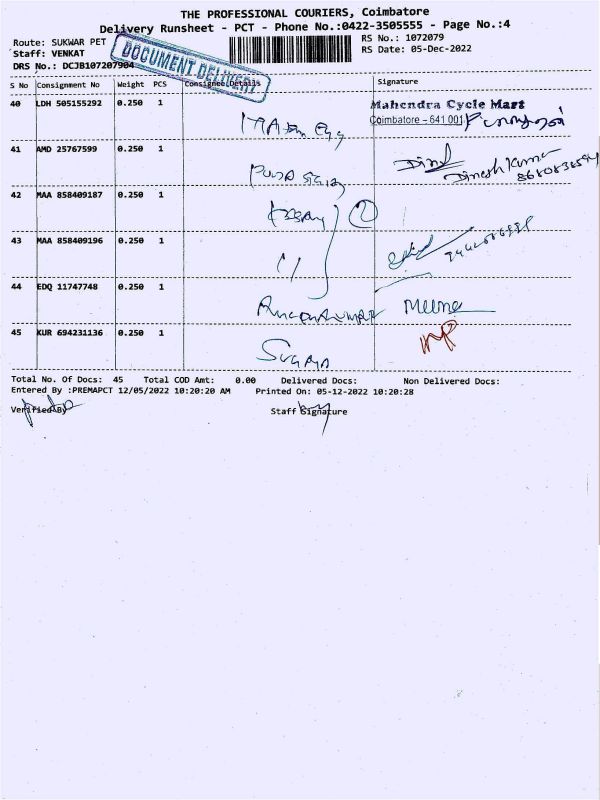 THE PROFESSIONAL COURIERS, Coimbatore
Delivery Runsheet - PCT - Phone No.:0422-3505555 - Page No.:4
Route: SUKWAR PET
RS No.: 1072079
Staff: VENKAT
RS Date: 05-Dec-2022
DRS No.: DCJB107207904
DOCUMENT DELIVERY
S No Consignment No Weight PCS Consignee Details Signature
40 LDH 505155292 0.250 1
Mahendra Cycle Mart
Coimbatore - 641 001
41 AMD 25767599 0.250 1
Dinesh Kumar
42 MAA 858409187 0.250 1
2
43 MAA 858409196 0.250 1
44 EDQ 11747748 0.250 1
Meena
45 KUR 694231136 0.250 1
Suguna
Total No. Of Docs: 45 Total COD Amt: 0.00 Delivered Docs: Non Delivered Docs:
Entered By :PREMAPCT 12/05/2022 10:20:20 AM Printed On: 05-12-2022 10:20:28
Verified By Staff Signature